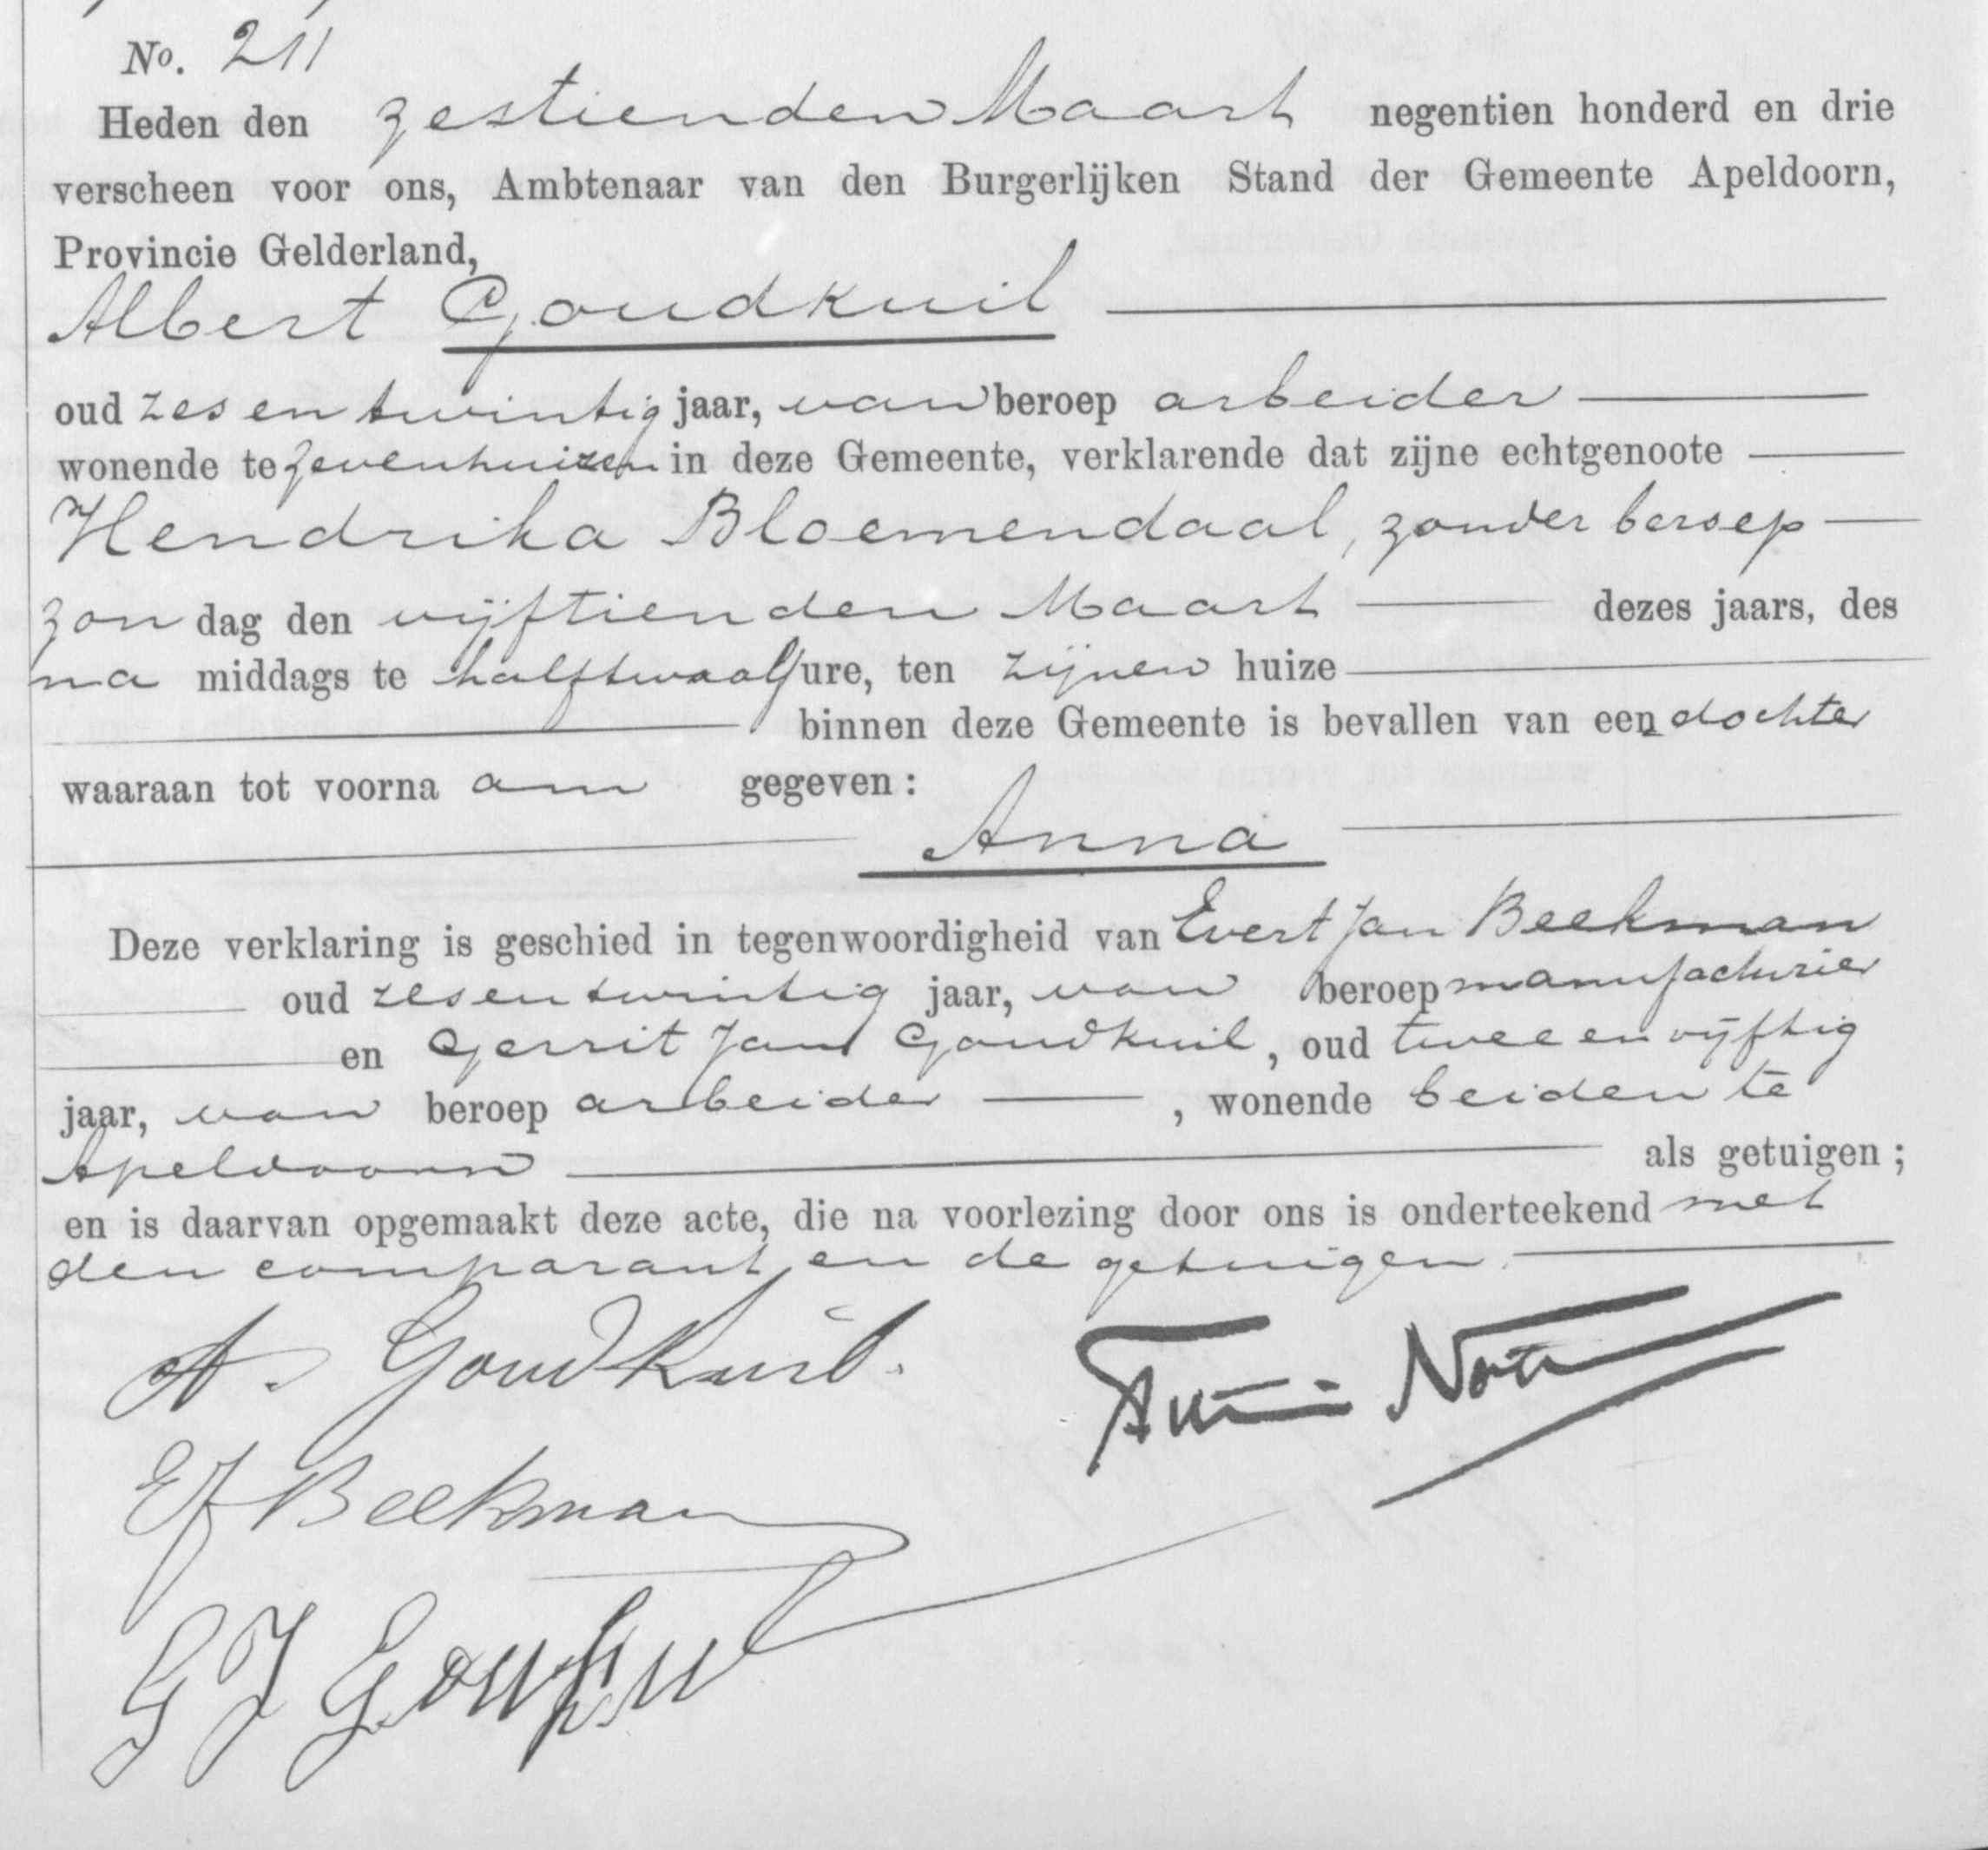 No. 211
Heden den zestienden Maart negentien honderd en drie
verscheen voor ons, Ambtenaar van den Burgerlijken Stand der Gemeente Apeldoorn,
Provincie Gelderland,
Albert Goudkuil
oud zes en twintig jaar, van beroep arbeider
wonende te Zevenhuizen in deze Gemeente, verklarende dat zijne echtgenoote
Hendrika Bloemendaal, zonder beroep
zon dag den vijftienden Maart dezes jaars, des
na middags te half twaalf ure, ten zijnen huize
binnen deze Gemeente is bevallen van een dochter
waaraan tot voorna am gegeven:
Anna
Deze verklaring is geschied in tegenwoordigheid van Evert Jan Beekman
oud zes en twintig jaar, van beroep manufacturier
en Gerrit Jan Goudkuil, oud twee en vijftig
jaar, van beroep arbeider, wonende beiden te
Apeldoorn als getuigen;
en is daarvan opgemaakt deze acte, die na voorlezing door ons is onderteekend met
den comparant en de getuigen.
A. Goudkuil.
EJ Beekman
G J